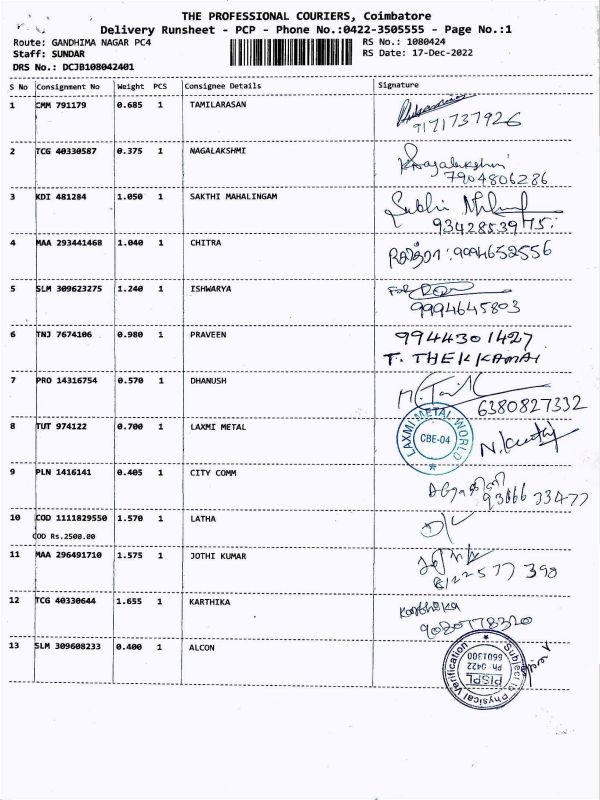 THE PROFESSIONAL COURIERS, Coimbatore
Delivery Runsheet - PCP - Phone No.:0422-3505555 - Page No.:1
Route: GANDHIMA NAGAR PC4 RS No.: 1080424
Staff: SUNDAR RS Date: 17-Dec-2022
DRS No.: DCJB108042401
S No Consignment No Weight PCS Consignee Details Signature
1 CMM 791179 0.685 1 TAMILARASAN
9171737926
2 TCG 40330587 0.375 1 NAGALAKSHMI Nagalakshmi
7904806286
3 KDI 481284 1.050 1 SAKTHI MAHALINGAM
93428539
4 MAA 293441468 1.040 1 CHITRA 9994652556
5 SLM 309623275 1.240 1 ISHWARYA For
9994645803
6 TNJ 7674106 0.980 1 PRAVEEN 9944301427
T. THEKKAMAI
7 PRO 14316754 0.570 1 DHANUSH
6380827332
8 TUT 974122 0.700 1 LAXMI METAL LAXMI METAL WORLD
CBE-04
9 PLN 1416141 0.405 1 CITY COMM
10 COD 1111829550 1.570 1 LATHA
COD Rs.2500.00
11 MAA 296491710 1.575 1 JOTHI KUMAR
8122577398
12 TCG 40330644 1.655 1 KARTHIKA Karthika
9080778320
13 SLM 309608233 0.400 1 ALCON Subject to Physical Verification
PISPL
Ph: 0422
6601300